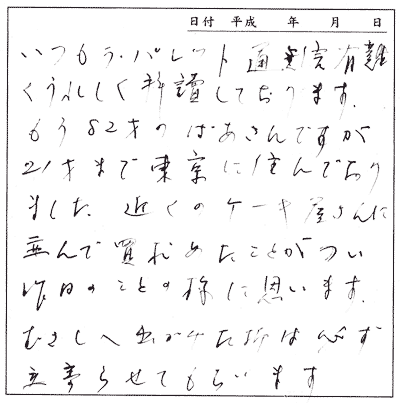 日付 平成 年 月 日
いつもラ・パレット通信有難
くうれしく拝読しております。
もう82才のばあさんですが
21才まで東京に住んでおり
ました。近くのケーキ屋さんに
並んで買い求めたことがつい
昨日のことの様に思います。
むさしへ出かけた折は必ず
立寄らせてもらいます